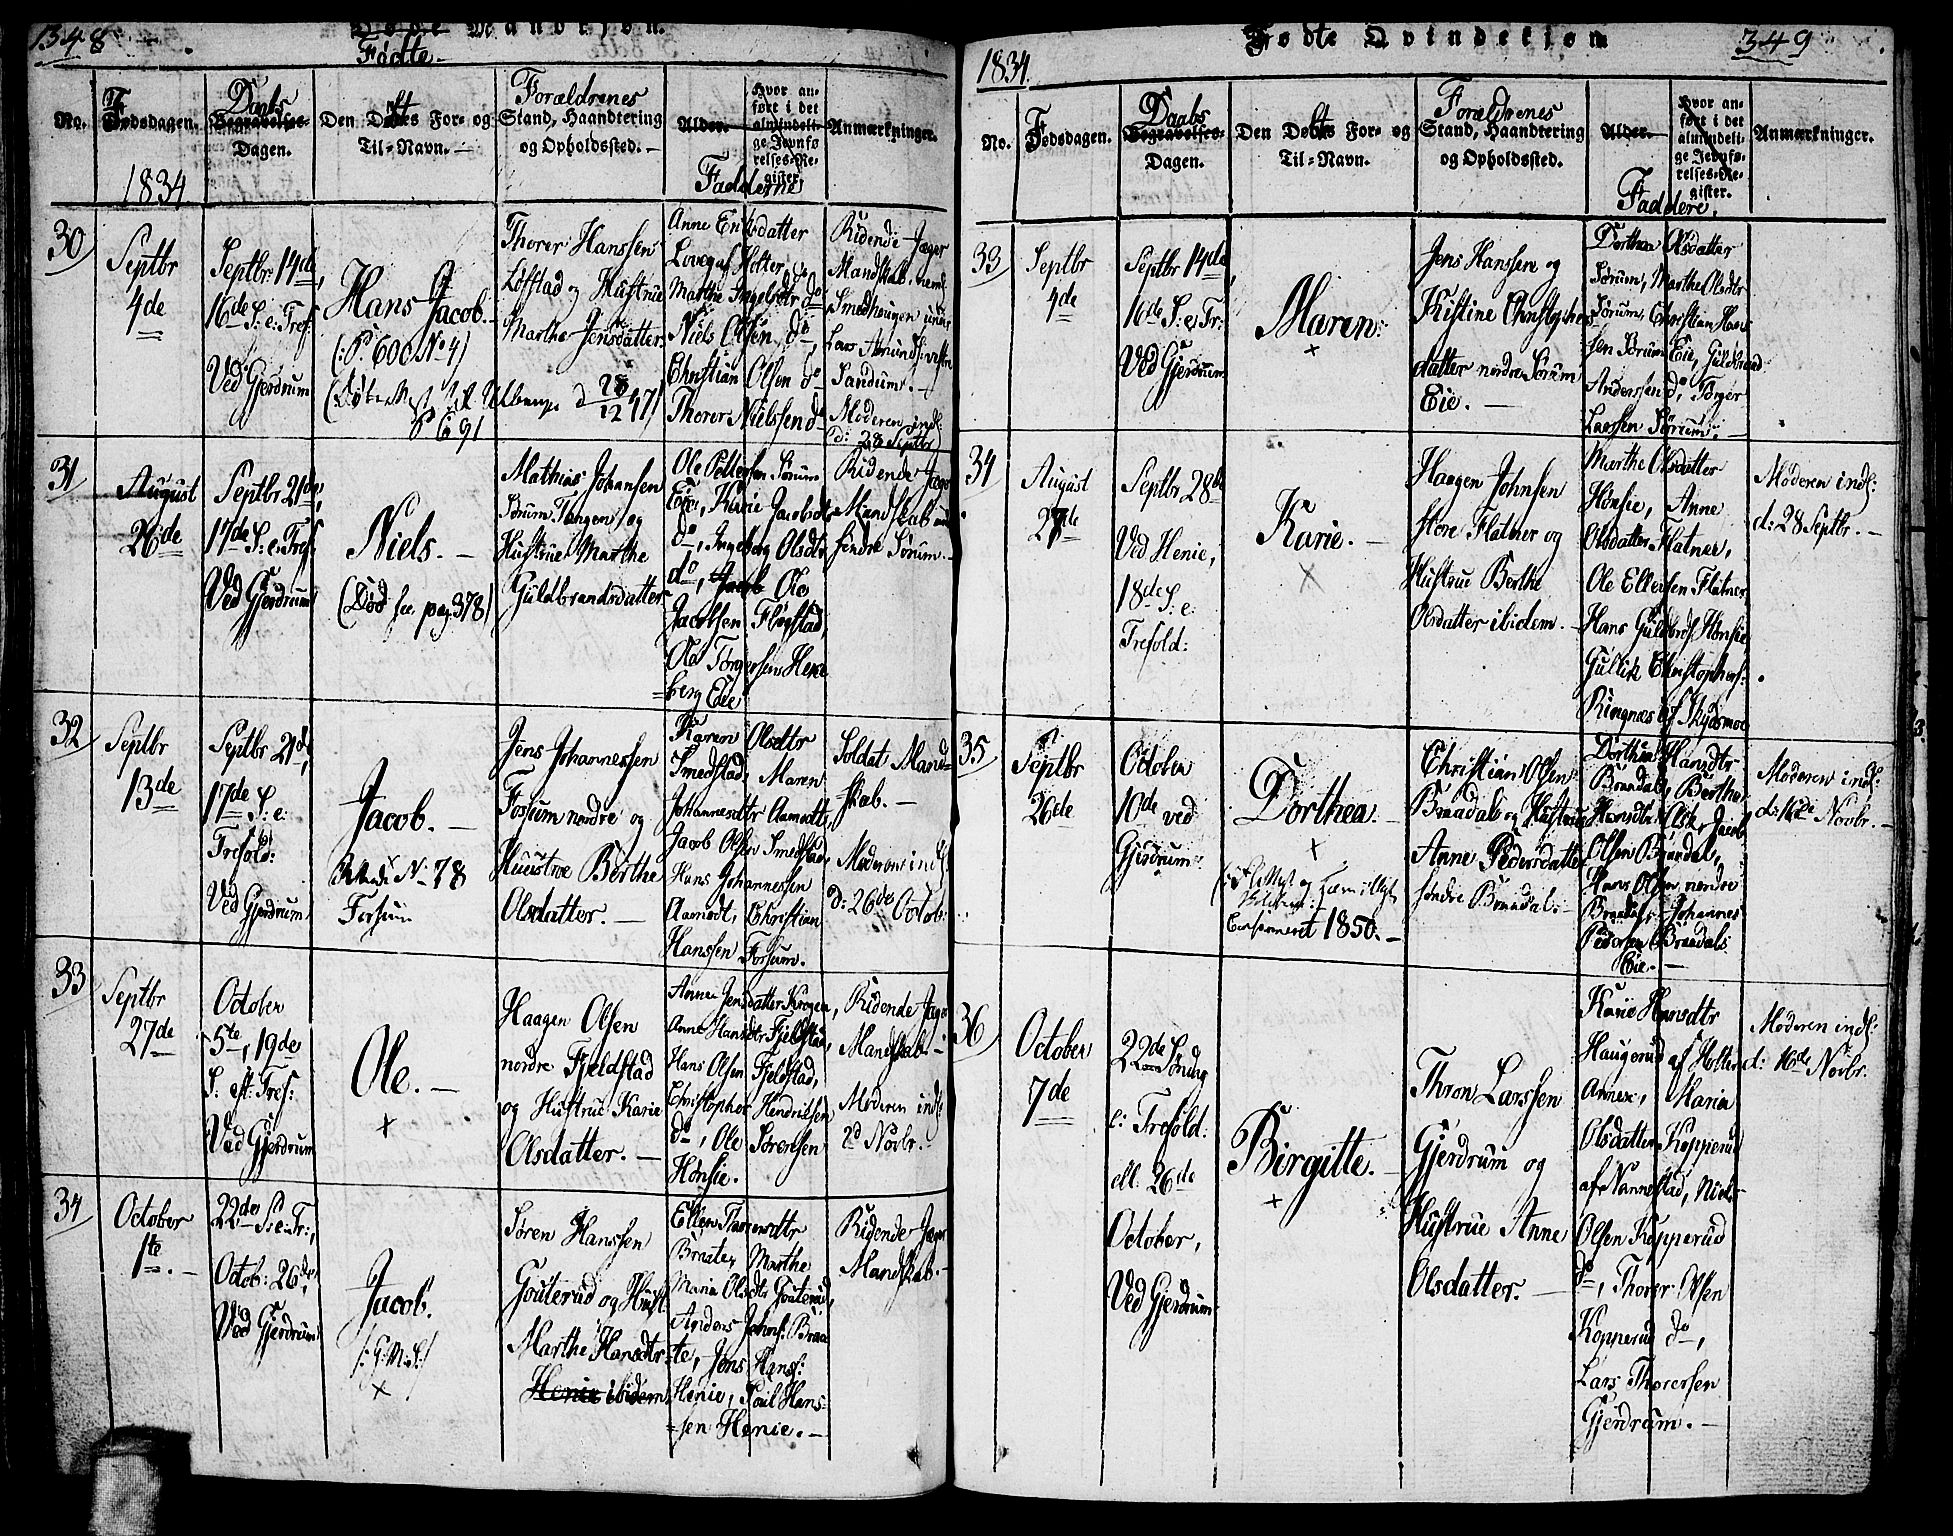 1348
Døde Mandkjøn.
Fødte
No.
Fødsdagen.
Daabs
Begravelses-
Dagen.
Den Døbtes For- og
Til-Navn.
Forældrenes
Stand, Haandtering
og Opholdssted.
Alder.
Hvor an-
ført i det
almindeli-
ge Jevnfø-
relses-Re-
gister.
Anmærkninger.
1834
Fadderne
30
Septbr
4de
Septbr: 14de,
16de S: e: Tref:
Ved Gjerdrum
Hans Jacob.
(: P: 600 No 4)
28/12 47)
P 691
Thorer Hanssen
Løfstad og Hustrue
Marthe Jensdatter.
Anne datter
Holter,
Marthe Ingebrdtr do
Niels Olsen, do,
Christian Olsen do
Thorer Nielssen do
Ridende Jæger
Mandskab.
Smedhaugen
Lars
Sandum.
Moderen indl:
d: 28 Septbr)
31
August
26de
Septbr 21de,
17de S: e: Tref:
Ved Gjerdrum
Niels.
(Død see pag 378)
Mathias Johansen
Sørum Tangen og
Hustrue Marthe
Guldbrandsdatter
Ole Pettersen Sørum
Eie, Karie Jacobsdtr
do, Ingeborg Olsdtr
do, Jacob Ole
Jacobsen Fløgstad,
Ole Torgersen Heke
berg Eie
Ridende Jæger
Mandskab
søndre Sørum.
32
Septbr
13de
Septbr 21de,
17de S: e:
Trefold:
Ved Gjerdrum
Jacob.
No 78
Forsum
Jens Johannessen
Fossum nordre og
Huustroe Berthe
Olsdatter.
Karen Olsdtr
Smedstad, Maren
Johannesdtr Aamodt,
Jacob Olsen Smedstad
Hans Johannessen
Aamodt, Christian
Hanssen Forsum.
Soldat Mand-
skab.
Moderen indl:
D: 26de Octob:
33
Septbr
27de
October
5te, 19de
S. eft: Tref:
Ved Gjerdrum
Ole.
Haagen Olsen
nordre Fjeldstad
og Hustrue Karie
Olsdatter.
Anne Jensdatter Krogen,
Anne Hansdtr Fjeldstad,
Hans Olsen Fjeldstad,
Christopher Hendrilsen
do, Ole Sørensen
Hønsie.
Ridende Jæger
Mandskab
Moderen indl:
2d Novbr.
34
October
1te.
22de S: e: Tr:,
Octob: 26de,
Ved Gjerdrum
Jacob.
Søren Hanssen
Gouterud og Hust:
Marthe Hansdtr
Henie ibidem
Ellen Thorersdtr
Braate, Marthe
Maria Olsdtr Gouterud,
Anders Johns: Braa
te, Jens Hans:
Henie, Poul Hans-
sen Henie.
Ridende Jæger
Mandskab.
1834.
Fødte Qvindekjøn
349
No.
Fødsdagen.
Daabs
Begravelses-
Dagen.
Den Døbtes For- og
Til-Navn.
Forældrenes
Stand, Haandtering
og Opholdssted.
Alder.
Hvor an-
ført i det
almindeli-
ge Jevnfø-
relses-Re-
gister.
Anmærkninger.
Faddere,
33
Septbr
4de
Septbr 14de
16de S: e: Tr:
Ved Gjerdrum
Maren:
Jens Hanssen og
Kistine Christophers
datter nordre Sørum
Eie.
Dorthea Olsdatter
Sørum, Marthe Olsdtr
Sørum, Christian Hans
sen Sørum Eie, Guldbrand
Anderssen do, Torger
Larssen Sørum.
34
August
27de
Septbr 28de
Ved Henie,
18de S: e:
Trefold:
Karie.
Haagen Johnsen
store Flatner og
Hustrue Berthe
Olsdatter ibidem.
Marthe Olsdatter
Hønsie, Anne
Olsdatter Flatner,
Ole Ellefsen Flatner
Hans Guldbrs: Hønsie
Gullik Christophers:
Ringnæs af Skydsmoe
Moderen indl:
d: 28 Septbr.
35
Septbr
26de
October
10de ved
Gjerdrum
Dorthea.
Confirmeret 1850.
Christian Olsen
Braadal og Hustrue
Anne Pedersdatter
søndre Braadal.
Dorthea Hansdtr
Braadal, Berthe
Hansdtr Olstr Jacob
Olsen Braadal,
Hans Olsen nordre
Braadal, Johannes
Pedersen Braadals
Eie.
Moderen indl:
d: 16de Novbr.
36
October
7de
22de Søndag
e: Trefold:
dl. 26de
October,
Ved Gjerdrum
Birgitte.
Thron Larssen
Gjerdrum og
Hustrue Anne
Olsdatter.
Karie Hansdtr
Haugerud af Holter
Annex, Maria
Olsdatter Kopperud
af Nannestad, Niels
Olsen Kopperud
do, Thorer Olsen
Kopperud do,
Lars Thorersen
Gjerdrum.
Moderen indl:
d: 16de Novbr.